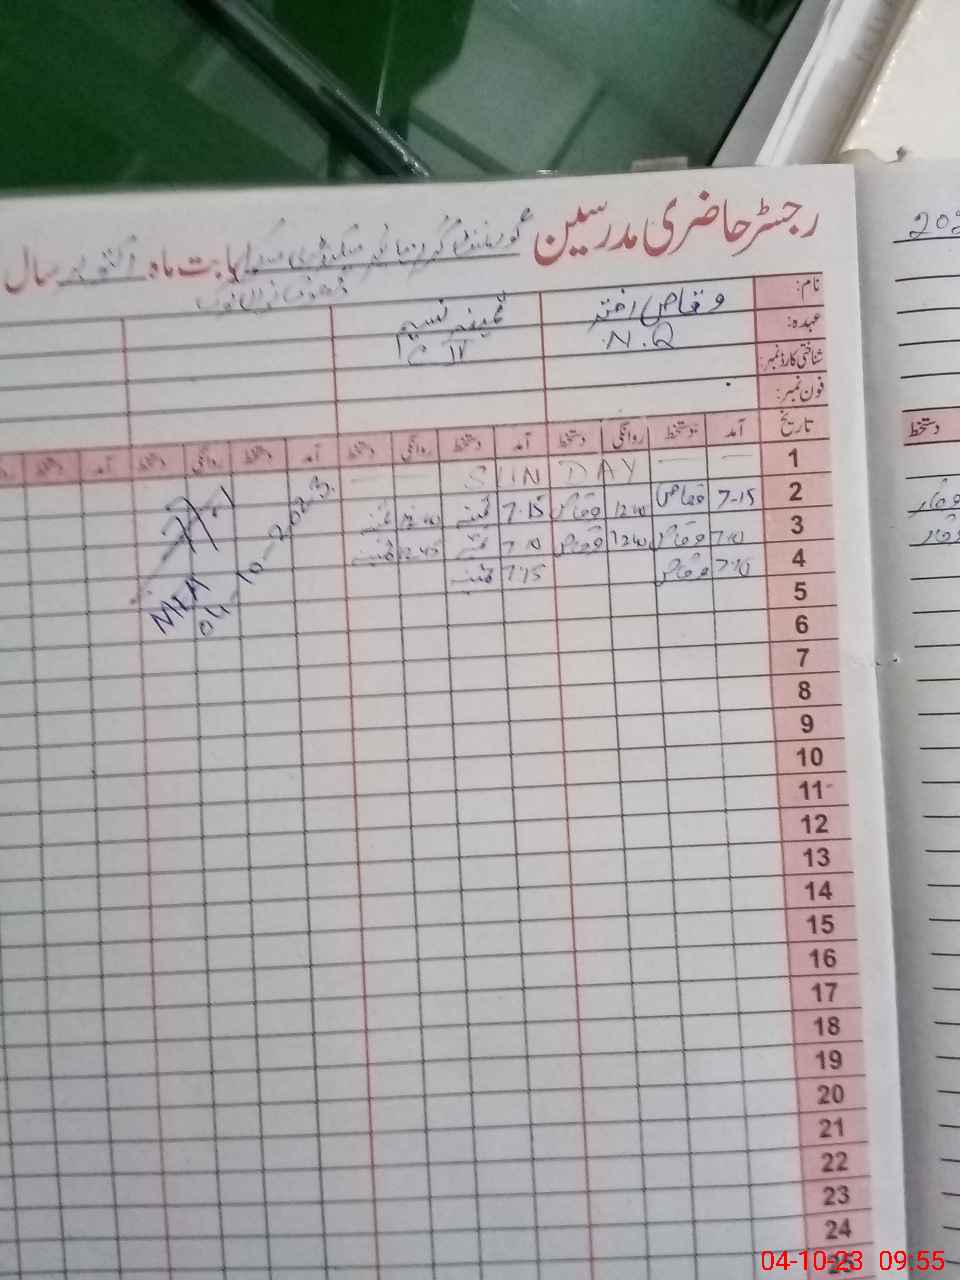 رجسٹر حاضری مدرسین گورنمنٹ گرلز ہائر سیکنڈری سکول بابت ماہ اکتوبر سال
202
نام: وقاص اختر ثمینہ نسیم
عہدہ: N.Q C IV
شناختی کارڈ نمبر:
فون نمبر:
تاریخ آمد دستخط روانگی دستخط آمد دستخط روانگی دستخط آمد دستخط روانگی دستخط آمد دستخط
دستخط
1 — — SUN DAY — —
2 7-15 وقاص 12:40 وقاص 7.15 ثمینہ 12:40 ثمینہ
3 7:10 وقاص 12:40 وقاص 7:10 ثمینہ 12:45 ثمینہ
4 7:15 وقاص 7:15 ثمینہ
MEA
04-10-2023
5
6
7
8
9
10
11
12
13
14
15
16
17
18
19
20
21
22
23
24
25
04-10-23 09:55